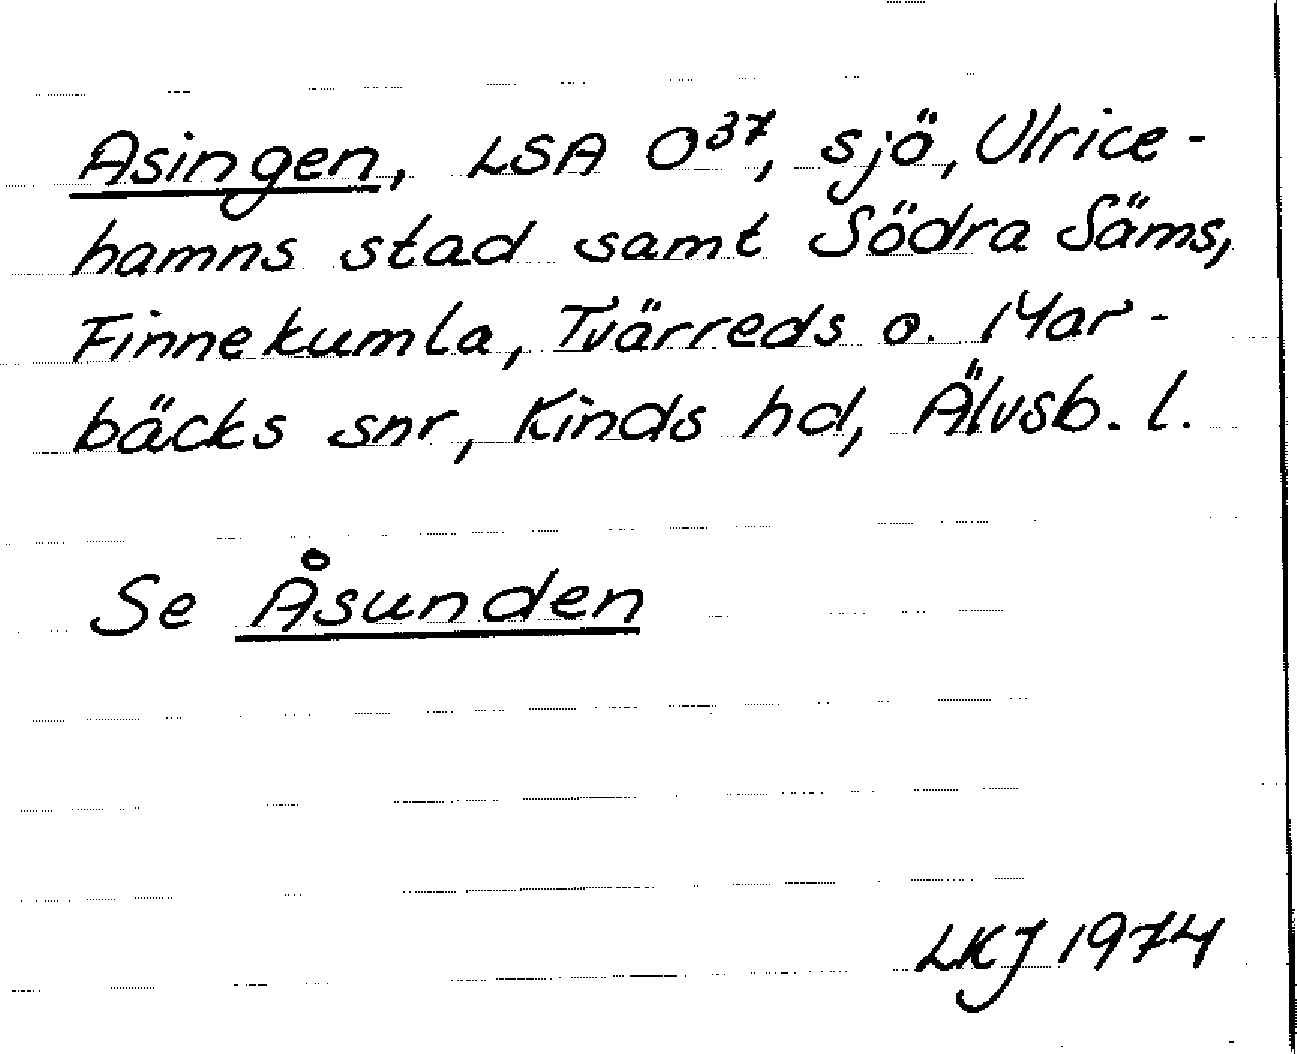 Asingen, LSA O³⁷, sjö, Ulrice-
hamns stad samt Södra Säms,
Finnekumla, Tvärreds o. Mar-
bäcks snr, Kinds hd, Älvsb. l.
Se Åsunden
LKJ 1974